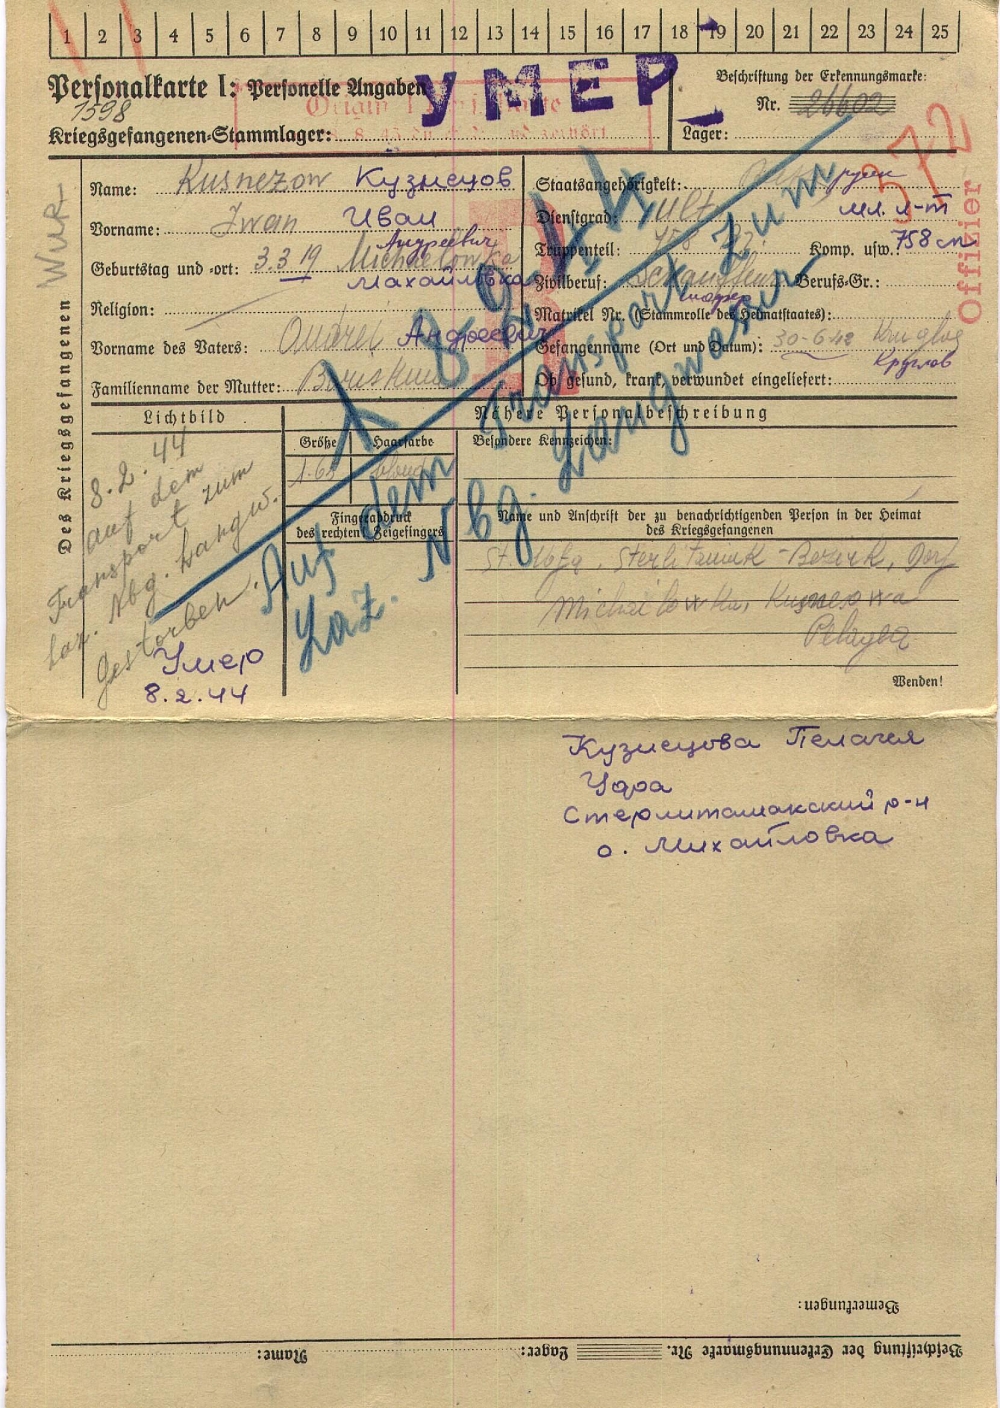 1 2 3 4 5 6 7 8 9 10 11 12 13 14 15 16 17 18 19 20 21 22 23 24 25
Personalkarte I: Personelle Angaben
УМЕР
Beschriftung der Erkennungsmarke:
Nr. 26602
1598
Kriegsgefangenen-Stammlager:
Lager:
572
Offizier
WUR
Des Kriegsgefangenen
Name: Kusnezow Кузнецов
Vorname: Iwan Иван
Андреевич
Geburtstag und -ort: 3.3.19 Michaelowka
Махайловка
Religion:
Vorname des Vaters: Andrei Андреевич
Familienname der Mutter:
Staatsangehörigkeit:
Dienstgrad: мл. л-т
Truppenteil: 758 Komp. usw.: 758 сп
Zivilberuf: Berufs-Gr.:
шофер
Matrikel Nr. (Stammrolle des Heimatstaates):
Gefangennahme (Ort und Datum): 30-6-42
Круглов
Ob gesund, krank, verwundet eingeliefert:
Lichtbild
Nähere Personalbeschreibung
Größe Haarfarbe
1.65 blond
Besondere Kennzeichen:
Fingerabdruck
des rechten Zeigefingers
Name und Anschrift der zu benachrichtigenden Person in der Heimat
des Kriegsgefangenen
St. Ufa, Sterlitamak-Bezirk, Dorf
Michailowka, Kusnezowa
Pelageja
Wenden!
8.2.44
auf dem
Transport zum
Laz. Nbg. Langw.
gestorben.
Умер
8.2.44
8-2-44
Auf dem Transport zum
Laz. Nbg. Langwasser
Кузнецова Пелагея
Уфа
Стерлитамакский р-н
о. Михайловка
Bemerkungen:
Beschriftung der Erkennungsmarke Nr. Lager: Name: